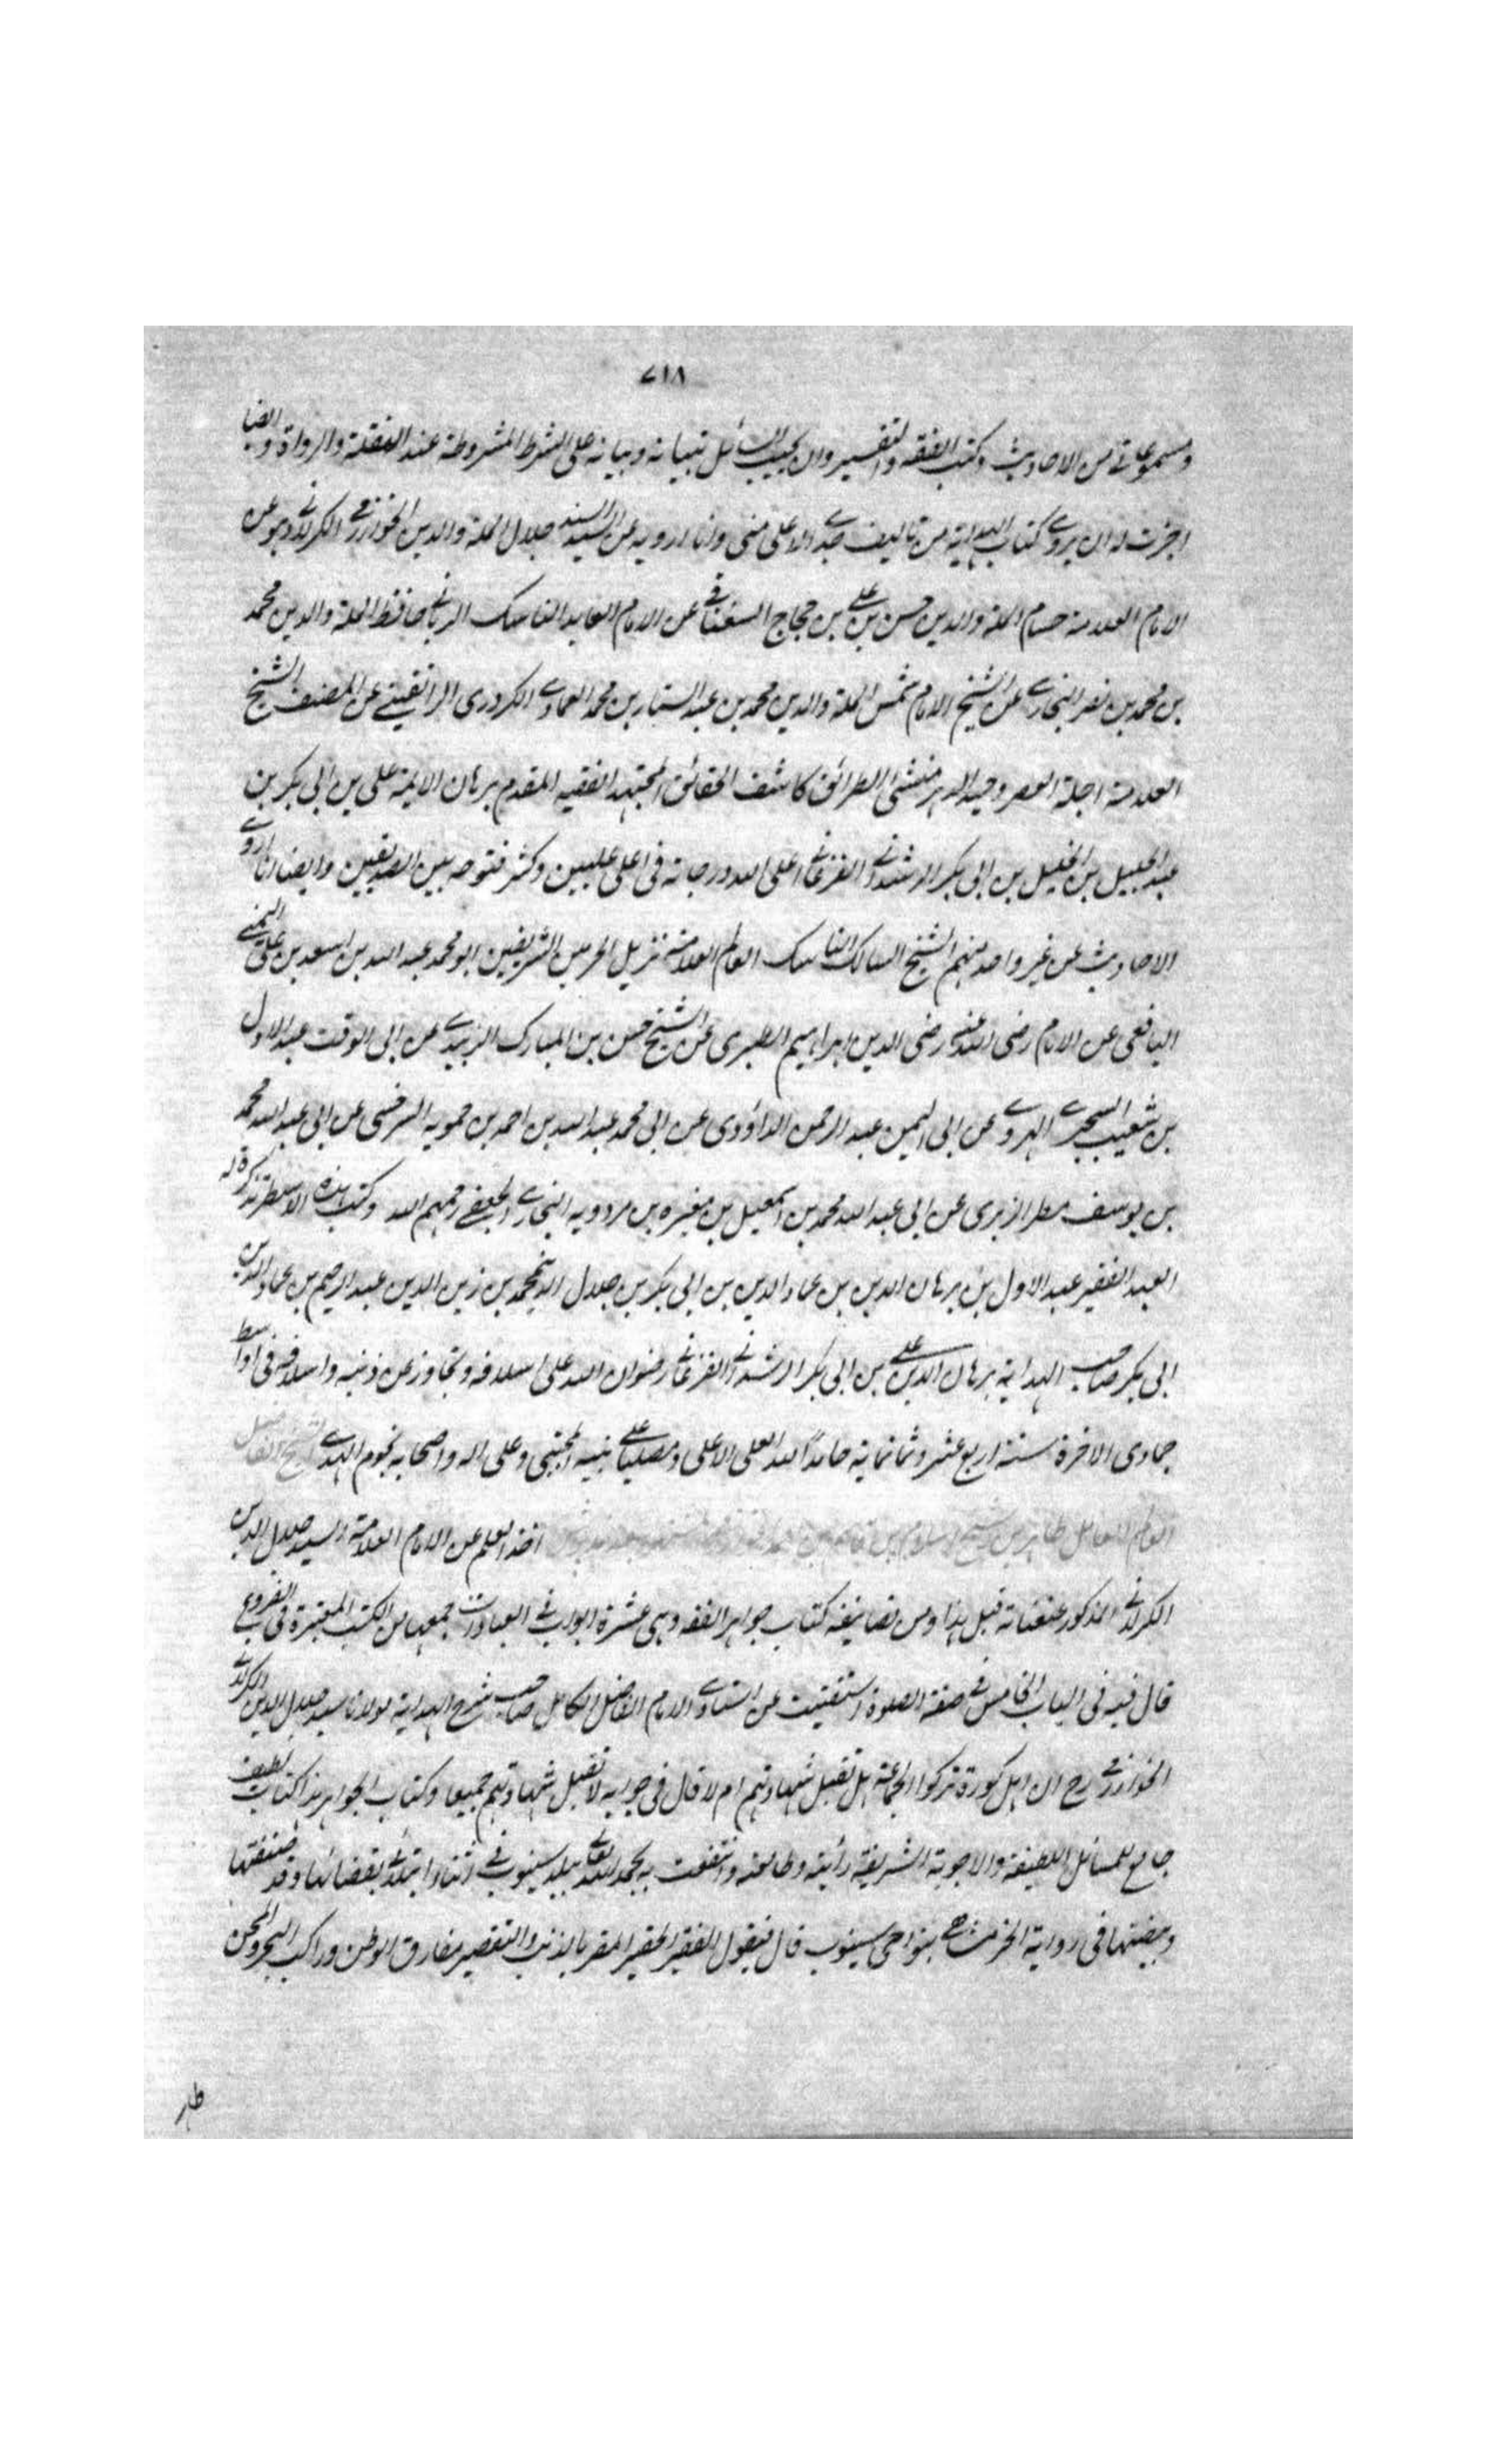 ٧١٨
ومسموعاتي من الاحاديث وكتب الفقه والتفسير وان يجيب السائل تبيانه وبيانه على الشرط المشروطة عند النقلة والرواة وايضا
اجزت له ان يروي كتاب الهداية من تاليف جدي الاعلى مني وانا ارويه عن السيد السند جلال الملة والدين الخوارزمي الكرلاني وهو عن
الامام العلامة حسام الملة والدين حسن بن علي بن حجاج السغناقي عن الامام العابد الناسك الرباني حافظ الملة والدين محمد
بن محمد بن نصر البخاري عن الشيخ الامام شمس الملة والدين محمد بن عبد الستار بن محمد العمادي الكردري البراتقيني عن المصنف الشيخ
العلامة اجلة العصر وحيد الدهر منشئ الطرائق كاشف الحقائق المجتهد الفقيه المقدم برهان الايمة علي بن ابي بكر بن
عبد الجليل بن الخليل بن ابي بكر الرشداني الفرغاني اعلى الله درجاته في اعلى عليين وكثر فتوحه بين الصديقين وايضا انا اروي
الاحاديث عن غير واحد منهم الشيخ السالك الناسك العالم العلامة نزيل الحرمين الشريفين ابو محمد عبد الله بن اسعد بن علي اليمني
اليافعي عن الامام رضي الله عنه رضي الدين ابراهيم الطبري عن الشيخ حسن بن المبارك الزبيدي عن ابي الوقت عبد الاول
بن شعيب السجزي الهروي عن ابي اليمن عبد الرحمن الداؤودي عن ابي محمد عبد الله بن احمد بن حمويه السرخسي عن ابي عبد الله محمد
بن يوسف مطر الزبرى عن ابي عبد الله محمد بن اسمعيل بن مغيره بن مردويه البخاري الجعفي رحمهم الله وكتب هذه الاسطر تذكرة له
العبد الفقير عبد الاول بن برهان الدين بن عماد الدين بن ابي بكر بن جلال الدين محمد بن زين الدين عبد الرحيم بن عماد الدين بن
ابي بكر صاحب الهداية برهان الدين علي بن ابي بكر الرشداني الفرغاني رضوان الله على اسلافه وتجاوز عن ذنبه واسلافه في اواسط
جمادى الاخرة سنة اربع عشر وثمانماية حامدا لله العلي الاعلى ومصليا على نبيه المجتبى وعلى اله واصحابه نجوم الهدى الشيخ الفاضل
العالم العامل طاهر بن شيخ اسلام بن قاسم بن اخذ العلم عن الامام العلامة السيد جلال الدين
الكرلاني المذكور عنعناته قبل هذا ومن تصانيفه كتاب جواهر الفقه وهى عشرة ابواب في العبادات جمعها من الكتب المعتبرة في الفروع
قال فيه في الباب الخامس في صفة الصلوة استفتيت عن استاذي الامام الفاضل الكامل صاحب شرح الهداية مولانا سيد جلال الدين الكرلاني
الخوارزمي رح ان اهل كورة تركوا الجماعة هل تقبل شهادتهم ام لا قال في جوابه لا تقبل شهادتهم جميعا وكتاب الجواهر هذا كتاب لطيف
جامع للمسائل اللطيفة والاجوبة الشريفة رأيته وطالعته وانتفعت به بحمد الله تعالى ببلد سينوب في اثناء ابتلائي بقضائها وقد صنفتها
وبيضتها في بنواحى سينوب قال فيقول الفقير الحقير المقر بالذنب والتقصير مفارق الوطن وراكب البحر والمحن
طاهر